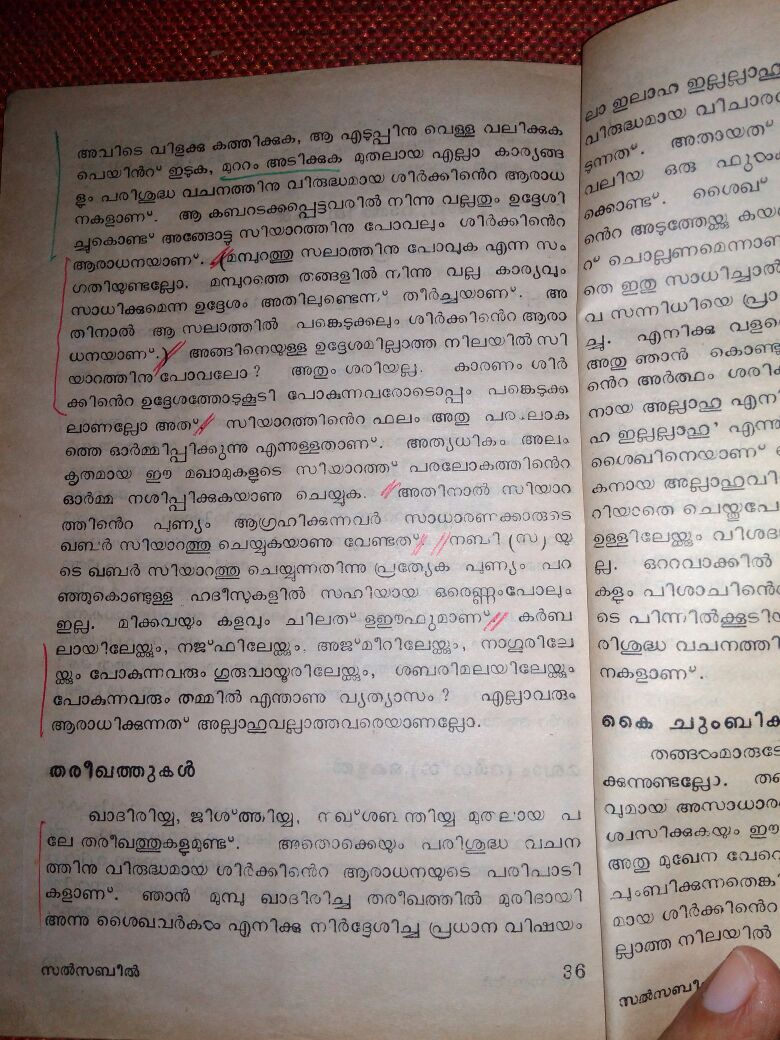 അവിടെ വിളക്കു കത്തിക്കുക, ആ എടുപ്പിനു വെള്ള വലിക്കുക
പെയിൻറ് ഇടുക, മുററം അടിക്കുക മുതലായ എല്ലാ കാര്യങ്ങ
ളും പരിശുദ്ധ വചനത്തിനു വിരുദ്ധമായ ശിർക്കിൻെറ ആരാധ
നകളാണ്. ആ കബറടക്കപ്പെട്ടവരിൽ നിന്നു വല്ലതും ഉദ്ദേശി
ച്ചുകൊണ്ട് അങ്ങോട്ടു സിയാറത്തിനു പോവലും ശിർക്കിൻെറ
ആരാധനയാണ്. (മമ്പുറത്തു സലാത്തിനു പോവുക എന്ന സം
ഗതിയുണ്ടല്ലോ. മമ്പുറത്തെ തങ്ങളിൽ നിന്നു വല്ല കാര്യവും
സാധിക്കുമെന്ന ഉദ്ദേശം അതിലുണ്ടെന്ന് തീർച്ചയാണ്. അ
തിനാൽ ആ സലാത്തിൽ പങ്കെടുക്കലും ശിർക്കിൻെറ ആരാ
ധനയാണ്.) അങ്ങിനെയുള്ള ഉദ്ദേശമില്ലാത്ത നിലയിൽ സി
യാറത്തിനു പോവലോ? അതും ശരിയല്ല. കാരണം ശിർ
ക്കിൻെറ ഉദ്ദേശത്തോടുകൂടി പോകുന്നവരോടൊപ്പം പങ്കെടുക്ക
ലാണല്ലോ അത് സിയാറത്തിൻെറ ഫലം അതു പരലോക
ത്തെ ഓർമ്മിപ്പിക്കുന്നു എന്നുള്ളതാണ്. അത്യധികം അലം
കൃതമായ ഈ മഖാമുകളുടെ സിയാറത്ത് പരലോകത്തിൻെറ
ഓർമ്മ നശിപ്പിക്കുകയാണു ചെയ്യുക. അതിനാൽ സിയാറ
ത്തിൻെറ പുണ്യം ആഗ്രഹിക്കുന്നവർ സാധാരണക്കാരുടെ
ഖബർ സിയാറത്തു ചെയ്യുകയാണു വേണ്ടത് നബി (സ) യു
ടെ ഖബർ സിയാറത്തു ചെയ്യുന്നതിന്നു പ്രത്യേക പുണ്യം പറ
ഞ്ഞുകൊണ്ടുള്ള ഹദീസുകളിൽ സഹിയായ ഒരെണ്ണംപോലും
ഇല്ല. മിക്കവയും കളവും ചിലത് ളഈഫുമാണ് കർബ
ലായിലേയ്ക്കും, നജ്ഫിലേയ്ക്കും. അജ്മീറിലേയ്ക്കും, നാഗൂരിലേ
യ്ക്കും പോകുന്നവരും ഗുരുവായൂരിലേയ്ക്കും, ശബരിമലയിലേയ്ക്കും
പോകുന്നവരും തമ്മിൽ എന്താണു വ്യത്യാസം? എല്ലാവരും
ആരാധിക്കുന്നത് അല്ലാഹുവല്ലാത്തവരെയാണല്ലോ.
തരീഖത്തുകൾ
ഖാദിരിയ്യ, ജിശ്ത്തിയ്യ, നഖ്ശബന്തിയ്യ മുതലായ പ
ലേ തരീഖത്തുകളുമുണ്ട്. അതൊക്കെയും പരിശുദ്ധ വചന
ത്തിനു വിരുദ്ധമായ ശിർക്കിൻെറ ആരാധനയുടെ പരിപാടി
കളാണ്. ഞാൻ മുമ്പു ഖാദിരിച്ച തരീഖത്തിൽ മുരിദായി
അന്നു ശൈഖവർകൾ എനിക്കു നിർദ്ദേശിച്ച പ്രധാന വിഷയം
സൽസബീൽ 36
ലാ ഇലാഹ ഇല്ലല്ലാഹു
വിരുദ്ധമായ
ടുന്നത്. അതായത്
വലിയ ഒരു
ക്കൊണ്ട്. ശൈഖ്
ൻെറ അടുത്തേയ്ക്കു
റ് ചൊല്ലണമെന്നാണ്
തെ ഇതു സാധിച്ചാൽ
വ സന്നിധിയെ
ച്ചു. എനിക്കു
അതു ഞാൻ
ൻെറ അർത്ഥം
നായ അല്ലാഹു
ഹ ഇല്ലല്ലാഹു'
ശൈഖിനെയാണ്
കനായ
റിയാതെ
ഉള്ളിലേയ്ക്കും
ല്ല. ഒററവാക്കിൽ
കളും
ടെ പിന്നിൽക്കൂടിയ
രിശുദ്ധ വചനത്തി
നകളാണ്.
കൈ ചുംബിക
തങ്ങന്മാരുടേ
ക്കുന്നുണ്ടല്ലോ.
വുമായ അസാധാര
ശ്വസിക്കുകയും ഈ
അതു മുഖേന
ചുംബിക്കുന്നതെങ്കി
മായ ശിർക്കിൻെറ
ല്ലാത്ത നിലയിൽ
സൽസബീ